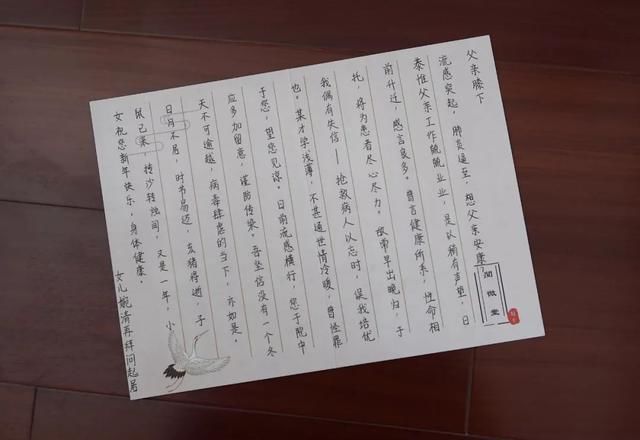 父亲膝下
流感突起，肺炎逼至，想父亲安康
泰惟父亲工作兢兢业业，是以稍有声望，日
前升迁，感言良多。昔言健康所系，性命相
托，将为患者尽心尽力。故常早出晚归，于
我偶有失信——抢救病人以忘时，误我培优
也。某才学浅薄，不甚通世情冷暖，曾怪罪
于您，望您见谅。日前流感横行，您于院中
应多加留意，谨防传染。吾坚信没有一个冬
天不可逾越，病毒肆虐的当下，亦如是。
日月不居，时节易迈，亥猪将逝，子
鼠已来，转沙转烛间，又是一年，小
女祝您新年快乐，身体健康。
女儿婉清再拜问起居
闻微堂